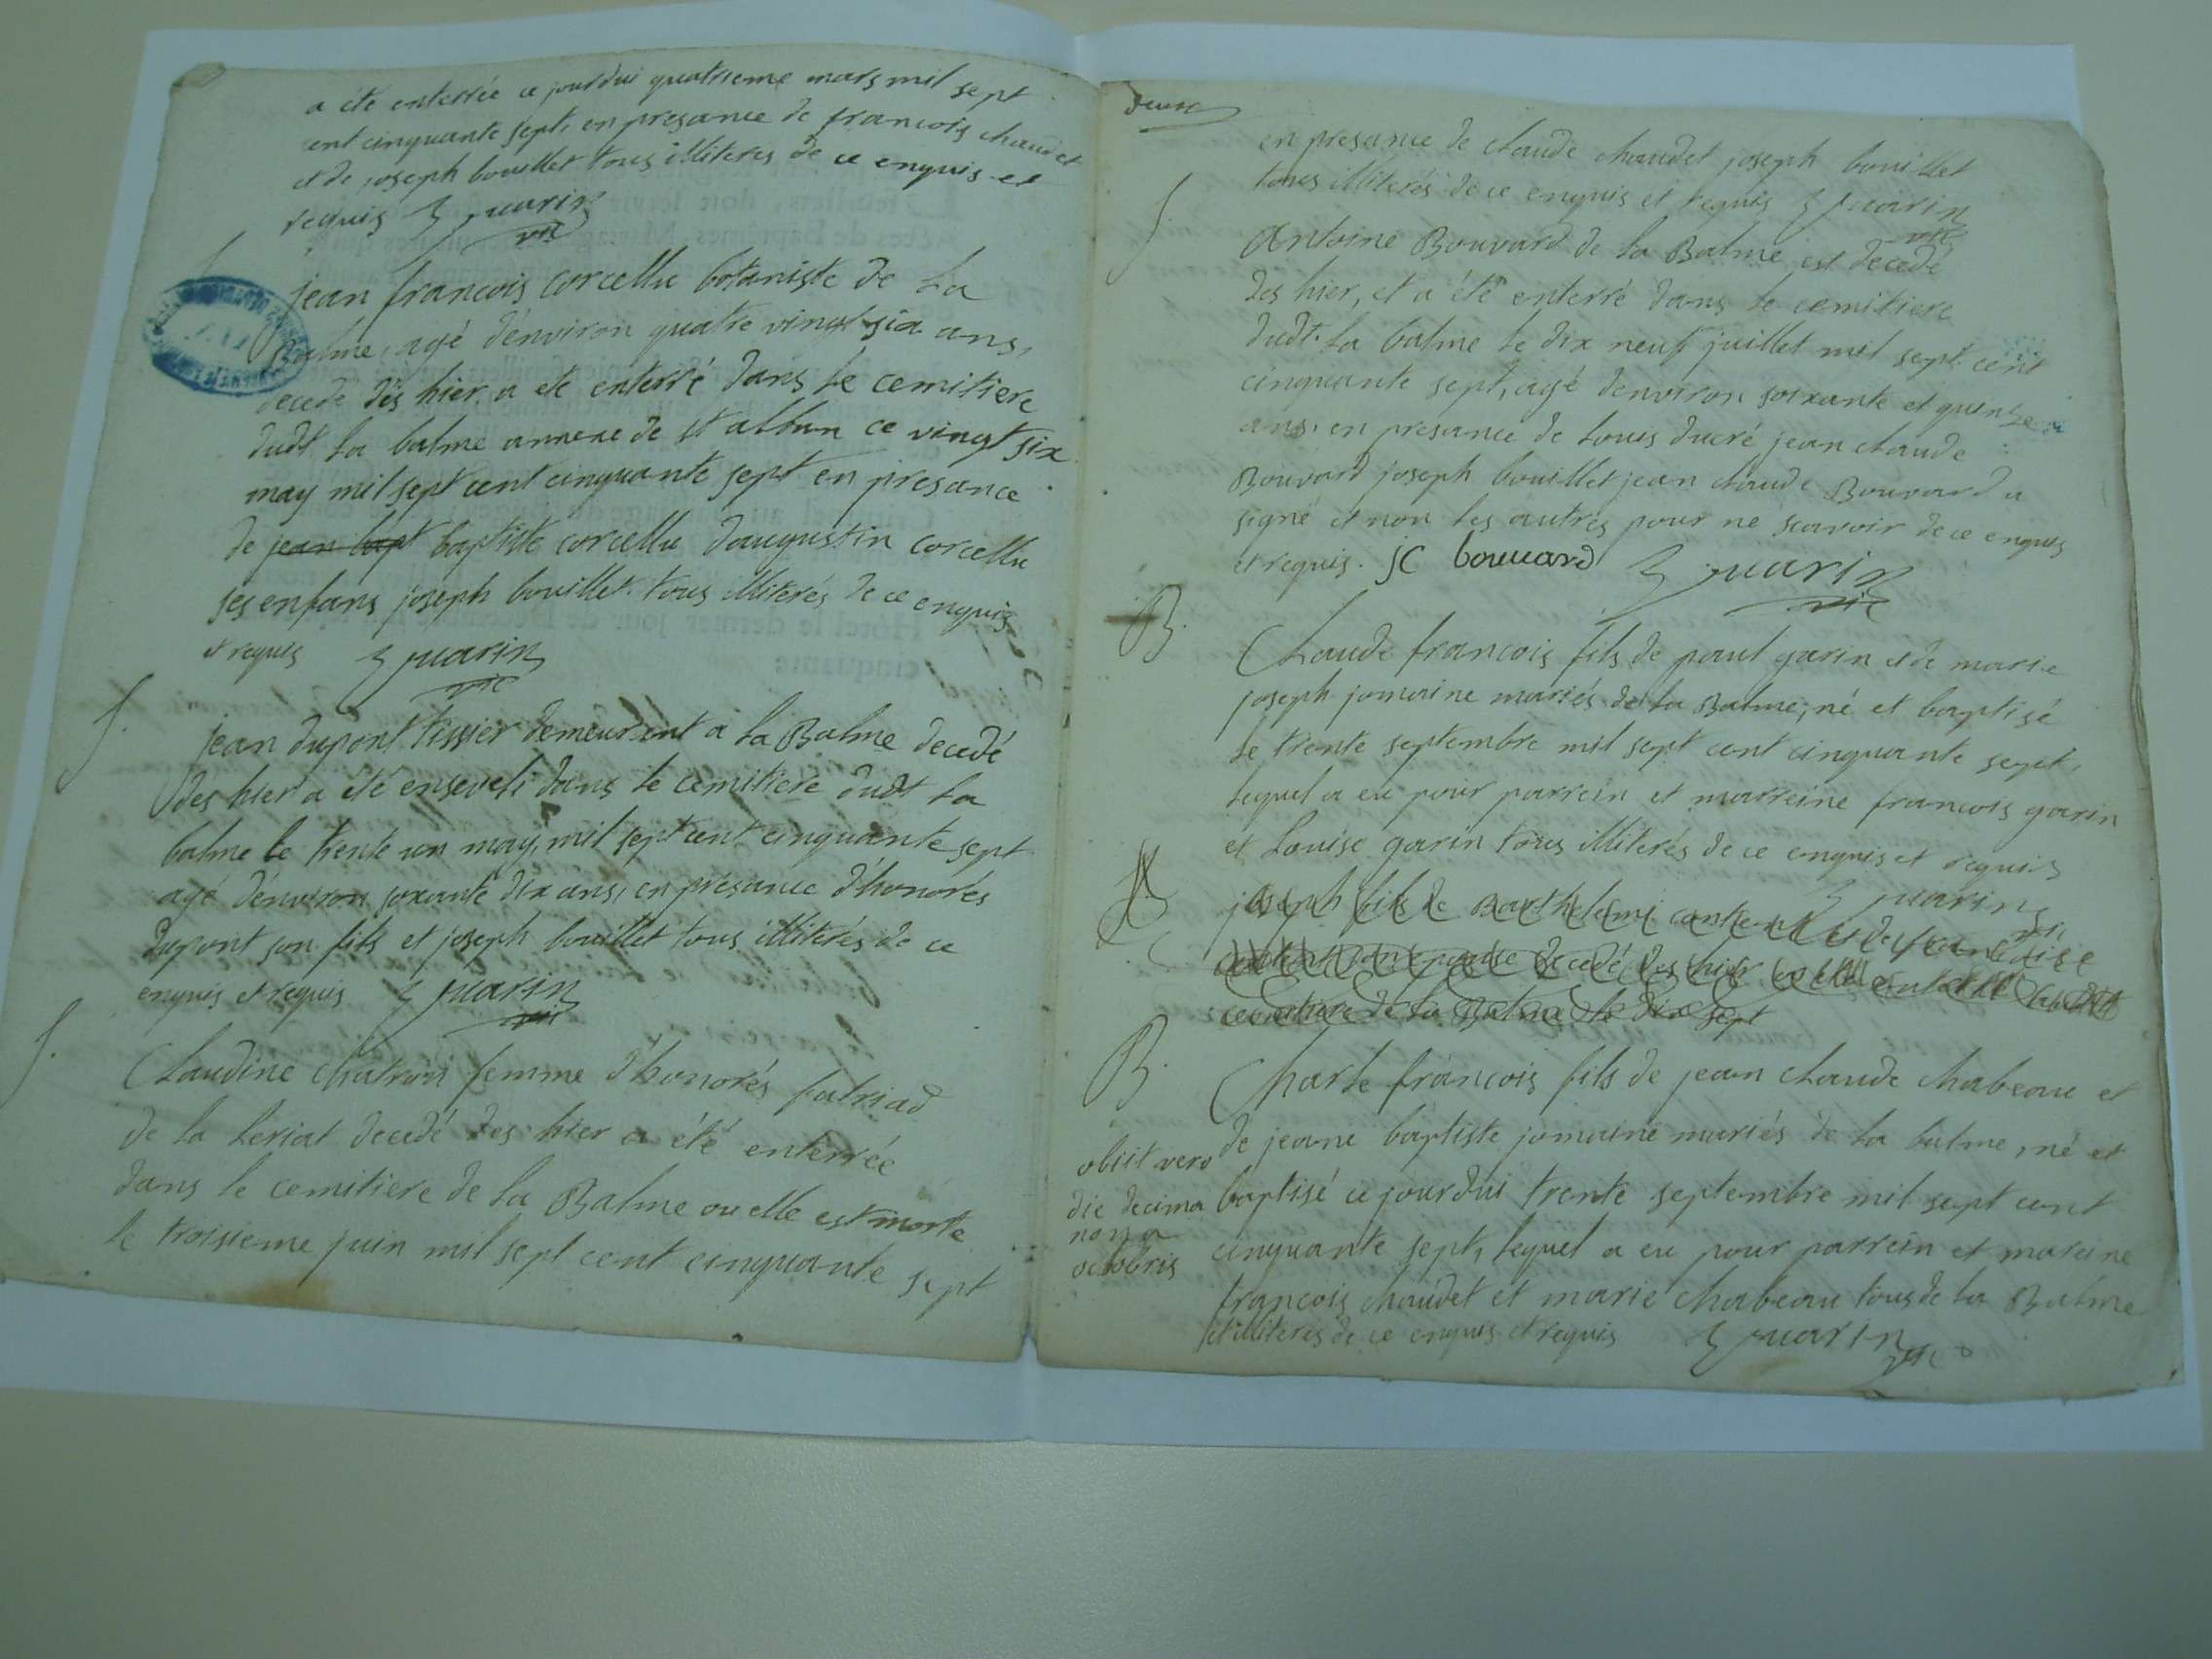 a été enterrée ce jourdui quatrieme mars mil sept
cent cinquante sept, en presance de francois chaudet
et de joseph bouillet tous illiteres de ce enquis et
requis
jean francois corcellu botaniste de la
Balme, agé d'environ quatre vingt six ans,
decedé dès hier a ete enterré dans le cemitiere
dudt la balme annexe de st alban ce vingt six
may mil sept cent cinquante sept en presance
de jean bapt baptiste corcellu d'augustin corcellu
ses enfans joseph bouillet tous illiterés de ce enquis
et requis
f.
jean dupont tissier demeurent a la Balme decedé
des hier a été enseveli dans le cemitiere dudt la
balme le trente un may, mil sept cent cinquante sept
agé d'environ soxante dix ans, en présance d'honorés
dupont son fils et joseph bouillet tous illiterés de ce
enquis et requis
f.
Claudine femme d'honorés
de la leriat decedé des hier a été enterrée
dans le cemitiere de la Balme ou elle est morte
le troisieme juin mil sept cent cinquante sept
deux
en presance de claude chaudet joseph bouillet
tous illiterés de ce enquis et requis
f.
Antoine Bouvard de la Balme est decedé
des hier, et a été enterré dans le cemitiere
dudt. la balme le dix neuf juillet mil sept cent
cinquante sept, agé denviron soixante et quinze
ans, en presance de Louis ducré jean claude
Bouvard joseph bouillet jean claude Bouvard a
signé et non les autres pour ne scavoir de ce enquis
et requis. jc bouuard
B.
Claude francois fils de paul garin et de marie
joseph jomaine mariés de la Balme, né et baptisé
le trente septembre mil sept cent cinquante sept,
lequel a eu pour parrein et marreine francois garin
et Louise garin tous illiterés de ce enquis et requis
joseph fils de Barthelemi et de
decedé des hier
cemitiere de la Balme le dix sept
B.
Charle francois fils de jean claude chabeau et
de jeane baptiste jomaine mariés de la balme, né et
baptisé ce jourdui trente septembre mil sept cent
cinquante sept, lequel a eu pour parrein et mareine
francois chaudet et marie chabeau tous de la Balme
et illiteres de ce enquis et requis
obiit vero
die decima
nona
octobris